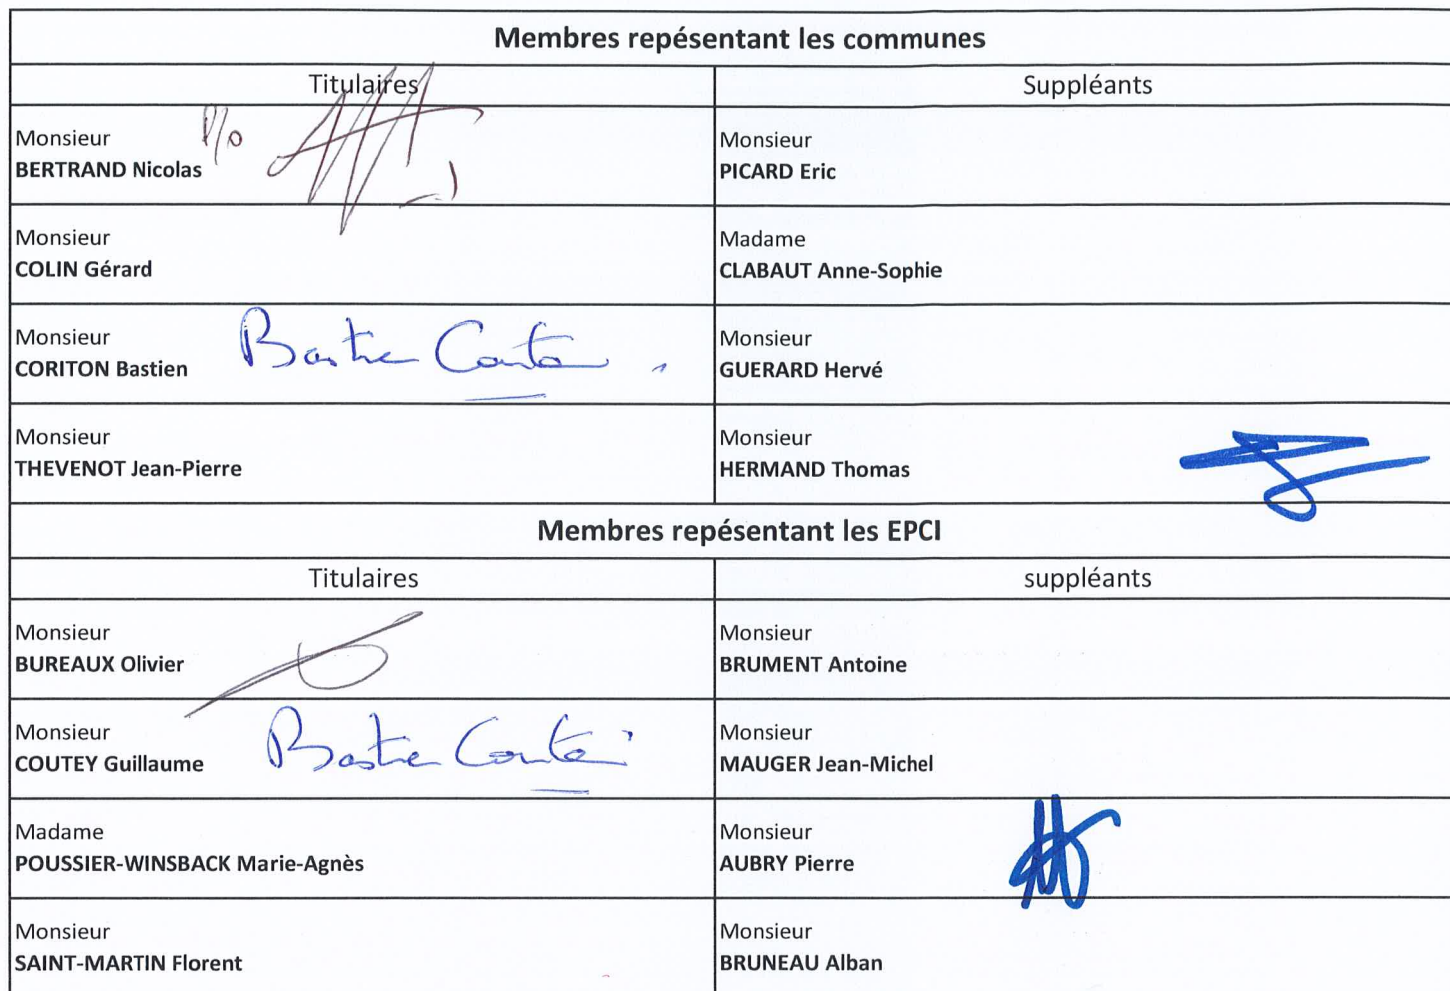 Membres repésentant les communes
Titulaires
Suppléants
Monsieur
BERTRAND Nicolas
P/o
Monsieur
PICARD Eric
Monsieur
COLIN Gérard
Madame
CLABAUT Anne-Sophie
Monsieur
CORITON Bastien
Bastien Coriton
Monsieur
GUERARD Hervé
Monsieur
THEVENOT Jean-Pierre
Monsieur
HERMAND Thomas
Membres repésentant les EPCI
Titulaires
suppléants
Monsieur
BUREAUX Olivier
Monsieur
BRUMENT Antoine
Monsieur
COUTEY Guillaume
Bastien Coriton
Monsieur
MAUGER Jean-Michel
Madame
POUSSIER-WINSBACK Marie-Agnès
Monsieur
AUBRY Pierre
Monsieur
SAINT-MARTIN Florent
Monsieur
BRUNEAU Alban